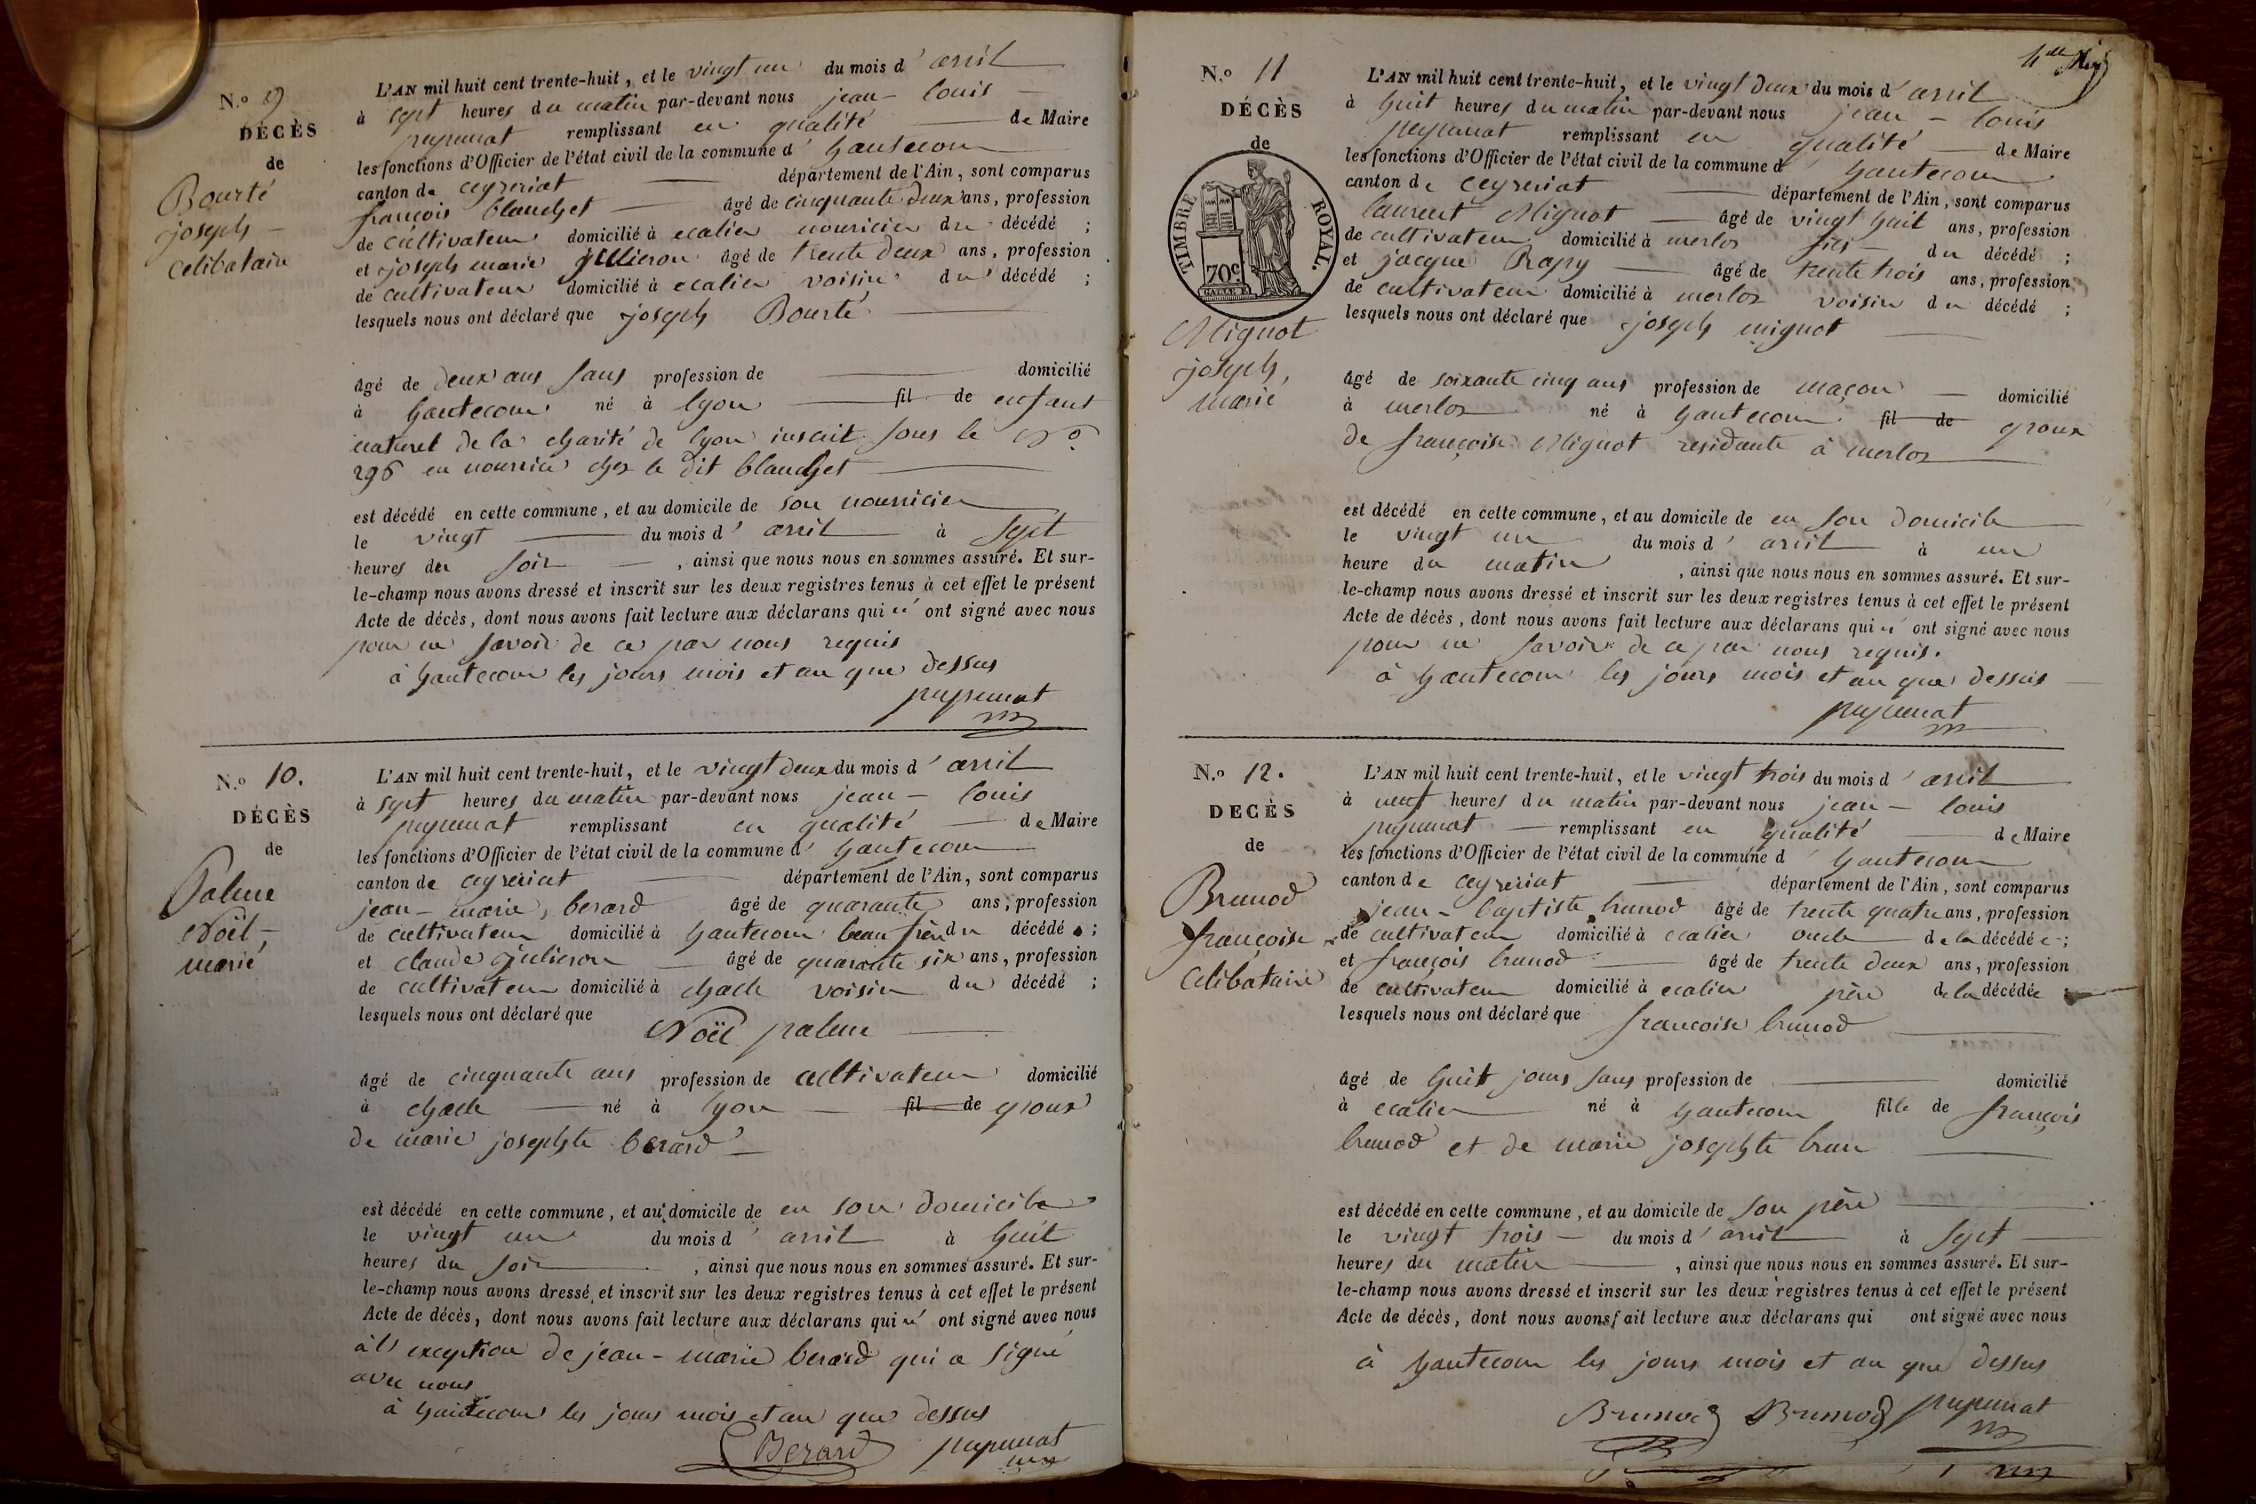 N.º 9
DÉCÈS
de
Bourté
joseph
celibataire
L'AN mil huit cent trente-huit, et le vingt un du mois d' avril
à sept heures du matin par-devant nous jean - louis
remplissant en qualité de Maire
les fonctions d'Officier de l'état civil de la commune d' hautecour
canton de ceyzeriat département de l'Ain, sont comparus
françois blanchet âgé de cinquante deux ans, profession
de cultivateur domicilié à ecalier nouricier du décédé ;
et joseph marie julieron âgé de trente deux ans, profession
de cultivateur domicilié à ecalier voisin du décédé ;
lesquels nous ont déclaré que joseph Bourté
âgé de deux ans sans profession de domicilié
à hautecour né à lyon fil de enfant
naturel de la charité de lyon inscrit sous le Nº
296 en nourrice chez le dit blanchet
est décédé en cette commune, et au domicile de son nourricier
le vingt du mois d' avril à sept
heures du soir , ainsi que nous nous en sommes assuré. Et sur-
le-champ nous avons dressé et inscrit sur les deux registres tenus à cet effet le présent
Acte de décès, dont nous avons fait lecture aux déclarans qui n' ont signé avec nous
pour ne savoir de ce par nous requis
à hautecour les jours mois et an que dessus
N.º 10.
DÉCÈS
de
Palme
Noël
marié
L'AN mil huit cent trente-huit, et le vingt deux du mois d' avril
à sept heures du matin par-devant nous jean - louis
remplissant en qualité de Maire
les fonctions d'Officier de l'état civil de la commune d' hautecour
canton de ceyzeriat département de l'Ain, sont comparus
jean - marie berard âgé de quarante ans, profession
de cultivateur domicilié à hautecour beau frère du décédé ;
et claude julieron âgé de quarante six ans, profession
de cultivateur domicilié à chale voisin du décédé ;
lesquels nous ont déclaré que
Noël palme
âgé de cinquante ans profession de cultivateur domicilié
à chale né à lyon fil de epoux
de marie josephte berard
est décédé en cette commune, et au domicile de en son domicile
le vingt un du mois d' avril à huit
heures du soir , ainsi que nous nous en sommes assuré. Et sur-
le-champ nous avons dressé et inscrit sur les deux registres tenus à cet effet le présent
Acte de décès, dont nous avons fait lecture aux déclarans qui n' ont signé avec nous
à l' exception de jean - marie berard qui a signé
avec nous
à hautecour les jours mois et an que dessus
Berard
N.º 11
DÉCÈS
de
TIMBRE ROYAL.
70c
Mignot
joseph,
marié
L'AN mil huit cent trente-huit, et le vingt deux du mois d' avril
à huit heures du matin par-devant nous jean - louis
remplissant en qualité de Maire
les fonctions d'Officier de l'état civil de la commune d' hautecour
canton de ceyzeriat département de l'Ain, sont comparus
laurent Mignot âgé de vingt huit ans, profession
de cultivateur domicilié à merloz fils du décédé ;
et jacque âgé de trente trois ans, profession
de cultivateur domicilié à merloz voisin du décédé ;
lesquels nous ont déclaré que joseph mignot
âgé de soixante cinq ans profession de maçon domicilié
à merloz né à hautecour fil de epoux
de françoise Mignot residante à merloz
est décédé en cette commune, et au domicile de en son domicile
le vingt un du mois d' avril à un
heure du matin , ainsi que nous nous en sommes assuré. Et sur-
le-champ nous avons dressé et inscrit sur les deux registres tenus à cet effet le présent
Acte de décès, dont nous avons fait lecture aux déclarans qui n' ont signé avec nous
pour ne savoir de ce par nous requis.
à hautecour les jours mois et an que dessus
N.º 12.
DECÈS
de
Brunod
françoise
celibataire
L'AN mil huit cent trente-huit, et le vingt trois du mois d' avril
à neuf heures du matin par-devant nous jean - louis
remplissant en qualité de Maire
les fonctions d'Officier de l'état civil de la commune d' hautecour
canton de ceyzeriat département de l'Ain, sont comparus
jean - baptiste brunod âgé de trente quatre ans, profession
de cultivateur domicilié à ecalier oncle de la décédée ;
et françois brunod âgé de trente deux ans, profession
de cultivateur domicilié à ecalier père de la décédée
lesquels nous ont déclaré que françoise brunod
âgé de huit jours sans profession de domicilié
à ecalier né à hautecour fille de françois
brunod et de marie josephte brun
est décédé en cette commune, et au domicile de son père
le vingt trois du mois d' avril à sept
heures du matin , ainsi que nous nous en sommes assuré. Et sur-
le-champ nous avons dressé et inscrit sur les deux registres tenus à cet effet le présent
Acte de décès, dont nous avons fait lecture aux déclarans qui ont signé avec nous
à hautecour les jours mois et an que dessus
Brunod Brunod